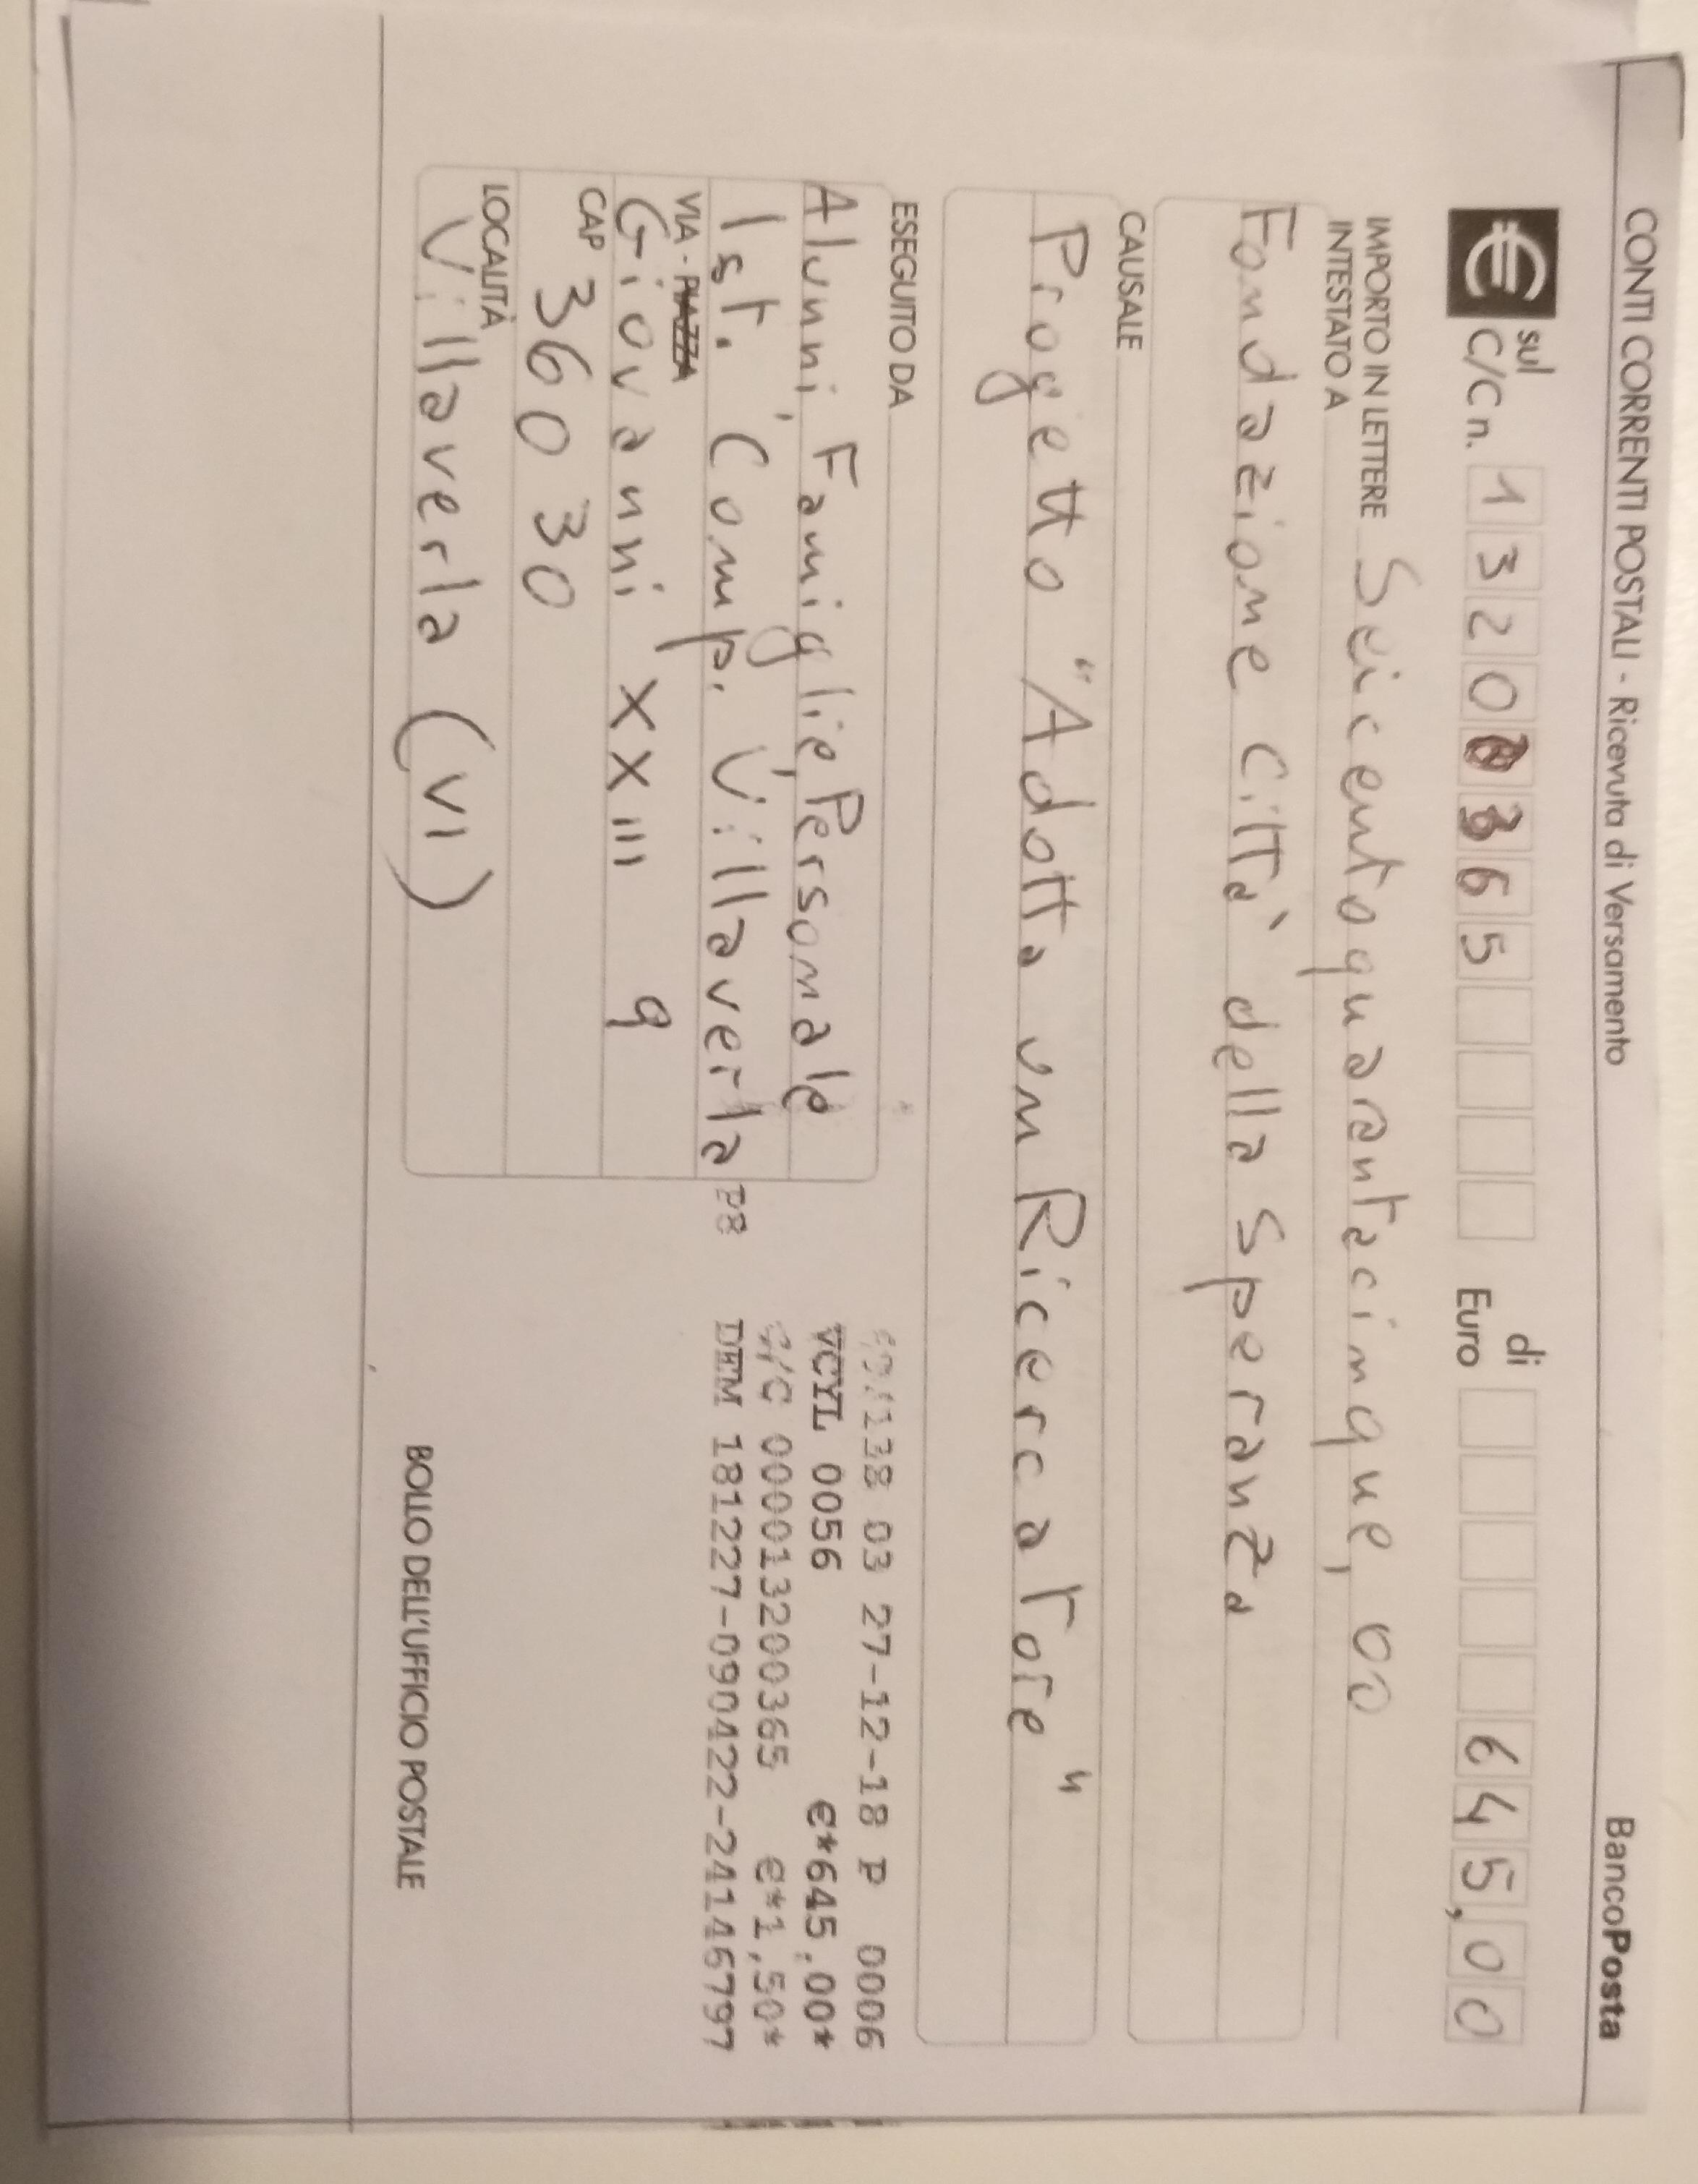 CONTI CORRENTI POSTALI - Ricevuta di Versamento BancoPosta
€ sul C/C n. 13200365 di Euro 645,00
IMPORTO IN LETTERE Seicentoquarantacinque, 00
INTESTATO A
Fondazione Città della Speranza
CAUSALE
Progetto "Adotta un Ricercatore"
ESEGUITO DA
Alunni, Famiglie, Personale
Ist. Comp. Villaverla
VIA - PIAZZA
Giovanni XXIII 9
CAP 36030
LOCALITÀ
Villaverla (VI)
/138 03 27-12-18 P 0006
VCYL 0056 €*645,00*
C/C 000013200365 €*1,50*
P8 DEM 181227-090422-24146797
BOLLO DELL'UFFICIO POSTALE